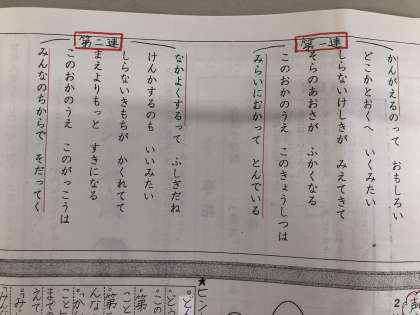 第一連
かんがえるのって　おもしろい
どこかとおくへ　いくみたい
しらないけしきが　みえてきて
そらのあおさが　ふかくなる
このおかのうえ　このきょうしつは
みらいにむかって　とんでいる
第二連
なかよくするって　ふしぎだね
けんかするのも　いいみたい
しらないきもちが　かくれてて
まえよりもっと　すきになる
このおかのうえ　このがっこうは
みんなのちからで　そだってく
★ヒン